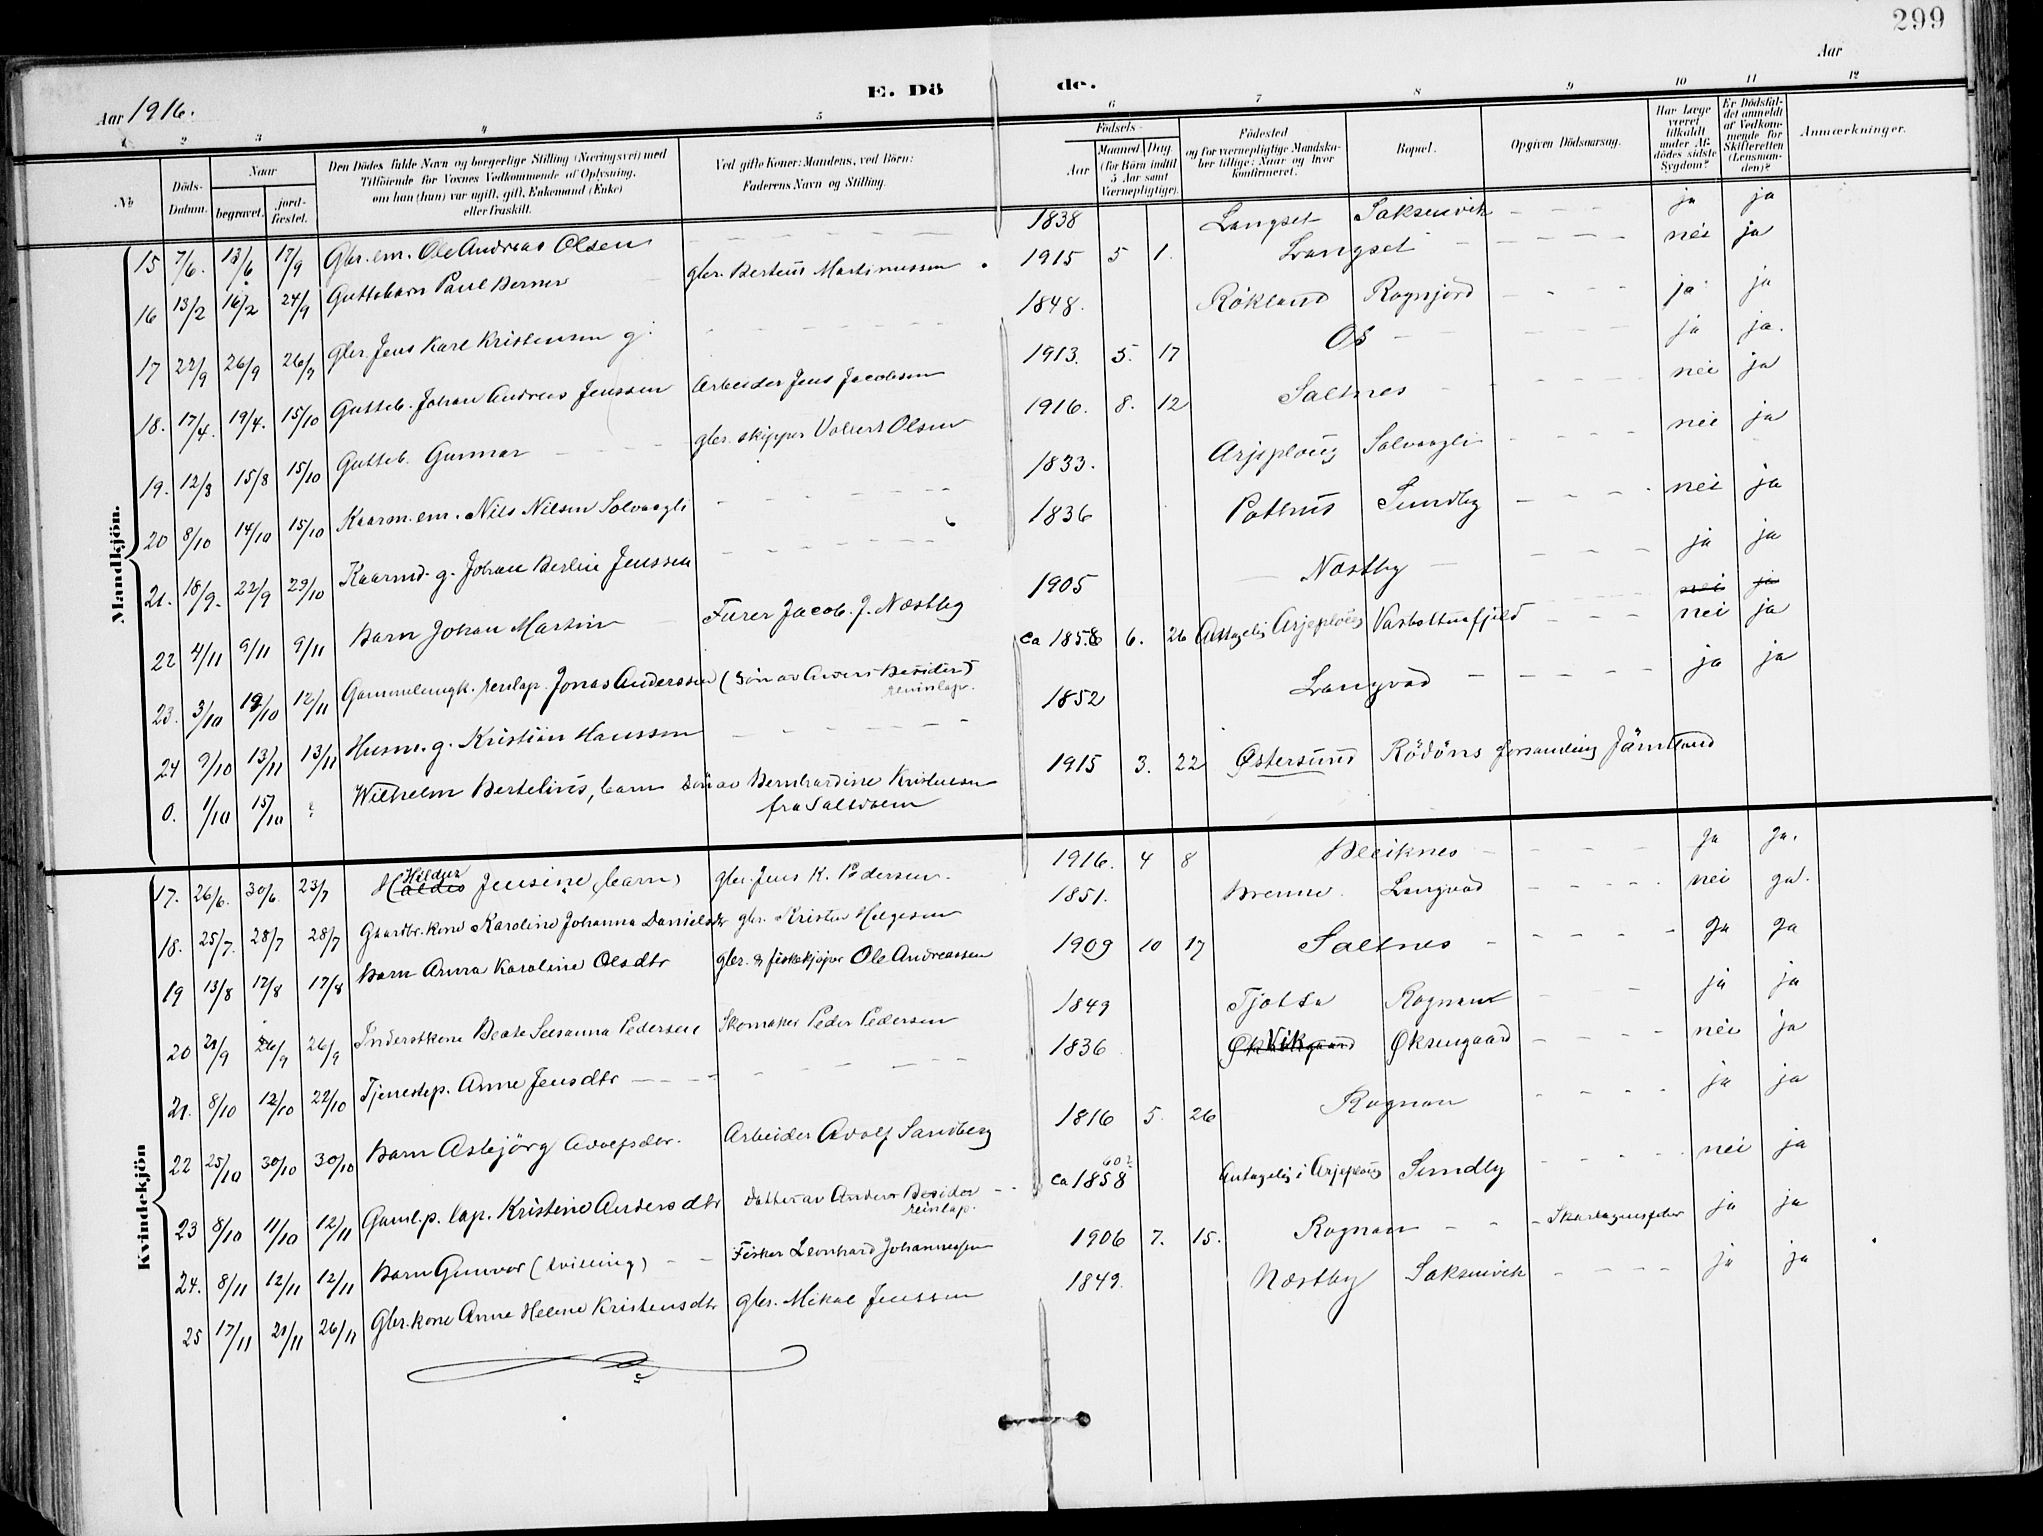 299
Aar 1916.
E. Dö de.
Aar
1 2 3 4 5 6 7 8 9 10 11 12
No.
Döds-Datum.
Naar
begravet.
jord-fæstet.
Den Dödes fulde Navn og borgerlige Stilling (Næringsvei) med Tilföiende for Voxnes Vedkommende af Oplysning, om han (hun) var ugift, gift, Enkemand (Enke) eller fraskilt.
Ved gifte Koner: Mandens, ved Börn: Faderens Navn og Stilling.
Födsels-
Aar
Maaned Dag
(for Börn indtil 5 Aar samt Værnepligtige).
Födested og for værnepligtige Mandskaber tillige: Naar og hvor konfirmeret.
Bopæl.
Opgiven Dödsaarsag.
Har Læge været tilkaldt under Afdödes sidste Sygdom?
Er Dödsfaldet anmeldt af Vedkommende for Skifteretten (Lensmanden)?
Anmærkninger.
Mandkjön.
15 7/6. 13/6 17/9 Gbr. em. Ole Andreas Olsen 1838 Langset Saksenvik ja ja
16 13/2 16/2 24/9 Guttebarn Paul Berner gbr. Berteus Martinussen 1915 5 1. Langset nei ja
17 22/9 26/9 26/9 Gbr. Jens Karl Kristensen g. 1848. Røkland Rognjord ja ja
18. 17/4. 19/4. 15/10 Gutteb. Johan Andreas Jenssen Arbeider Jens Jacobsen 1913. 5. 17 Os ja ja.
19. 12/8 15/8 15/10 Gutteb. Gunnar gbr. skipper Volbert Olsen 1916. 8. 12 Saltnes nei ja
20 8/10 14/10 15/10 Kaarm. em. Nils Nilsen Solvaagli 1833. Arjeploug Solvaagli nei ja
21. 18/9. 22/9 29/10 Kaarmd. g. Johan Berlin Jenssen 1836 Pothus Sundby nei ja
22 4/11 9/11 9/11 Barn Johan Martin Furer Jacob. J. Næstby 1905 Næstby ja ja
nei ja
23. 3/10 19/10 12/11 Gammelungk. renlap. Jonas Anderssen (Søn av Anders Besider) reinlap. ca 1858 6. 26 Antagelig Arjeploug Vasbottenfjeld nei ja
24 9/10 13/11 13/11 Husm. g. Kristian Hanssen 1852 Langvad ja ja
0. 1/10 15/10 ? Wilhelm Bertelius, barn Søn av Bernhardine Kristensen fra Saltdalen 1915 3. 22 Østersund Rödöns forsamling Jämtland
Kvindekjön
17. 26/6. 30/6. 23/7 Hilda Jensine, barn, gbr. Jens K. Pedersen. 1916. 4 8 Bleiknes ja ja.
18. 25/7. 28/7 28/7 Gaardbr. kone Karoline Johanna Danielsdtr gbr. Kristen Helgesen 1851. Brenne. Langvad nei ja.
19 13/8 17/8 17/8 Barn Anna Karoline Olsdtr gbr. & fiskekjøper Ole Andreassen 1909 10 17 Saltnes ja ja
20 21/9 26/9 26/9 Inderstkone Beate Susanna Pedersen Skomaker Peder Pedersen 1849 Tjøtta Rognan ja ja
21. 8/10 12/10 22/10 Tjenestep. Anne Jensdtr 1836 Vik Øksengaard nei ja
22 25/10 30/10 30/10 Barn Asbjörg Adolfsdtr. Arbeider Adolf Sandberg 1816 5. 26 Rognan ja ja
23 8/10 11/10 12/11 Gaml.p. lap. Kristine Andersdtr Datter av Anders Besider reinlap. ca 1858 60? Antagelig i Arjeploug Sundby nei ja
24. 8/11 12/11 12/11 Barn Gunvor (tvilling) Fisker Leonhard Johannessen 1906 7. 15. Rognan Skarlagensfeber ja ja
25 17/11 21/11 26/11 Gbr. kone Anne Helene Kristensdtr gbr. Mikal Jenssen 1849. Næstby Saksenvik ja ja